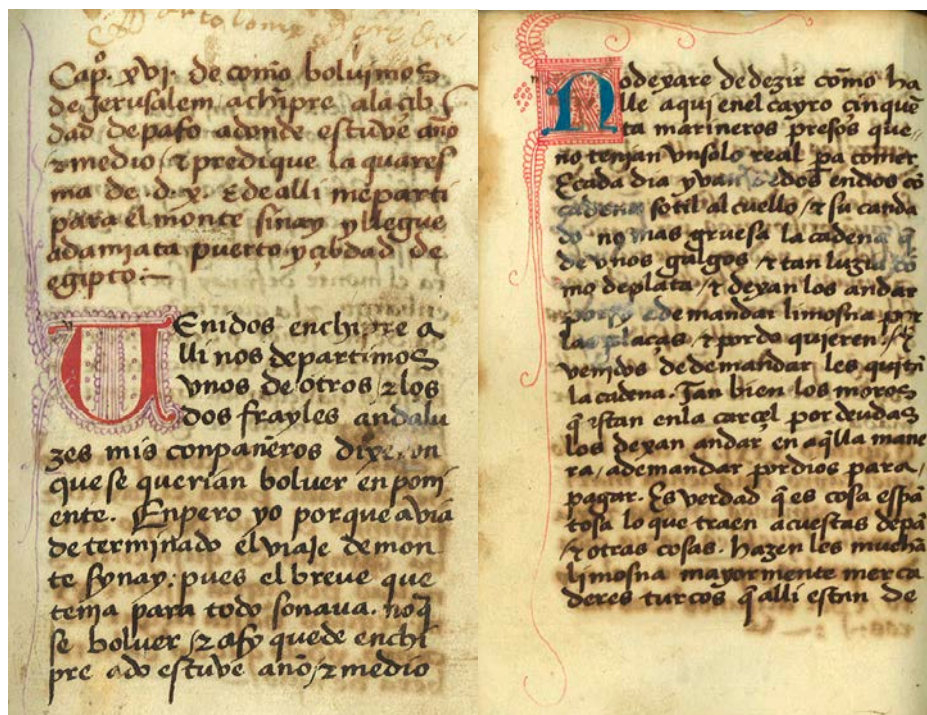 Cap.º xvi. de como boluimos
de Jerusalem, achipre ala çib
dad depafo adonde estuve año
⁊ medio / ⁊ predique la quares
ma de d.x. Edealli meparti
para el monte sinay y llegue
adamiata puerto y çibdad de
egipto:—
VEnidos enchipre a
lli nos departimos
vnos de otros ⁊ los
dos frayles andalu
zes mis conpañeros dixeron
quese querian boluer en poni
ente. Enpero yo porque avia
determinado el viaje demon
te synay: pues el breue que
tenja para todo sonaua. no q̃
se boluer / ⁊ asy quede enchi
pre ado estuve año / ⁊ medio
Nodexare dedezir como ha
lle aqui enel cayro çinquẽ
ta marineros presos que
no tenjan vnsolo real pa comer
E cada dia yvan de dos endos cõ
cadena sotil al cuello / ⁊ su canda
do no mas gruesa la cadena q̃
de vnos galgos / ⁊ tan luzia co
mo deplata / ⁊ dexan los andar
por sy e demandar limosna por
las plaças / ⁊ pordo quieren. / E
venidos dedemandar les quitã
la cadena. Tan bien los moros
q̃ estan enla carçel por deudas
los dexan andar en aq̃lla mane
ra / ademandar pordios para
pagar. Es verdad q̃ es cosa espã
tosa lo que traen acuestas depã
/ ⁊ otras cosas. hazen les mucha
limosna mayormente merca
deres turcos q̃ alli estan de